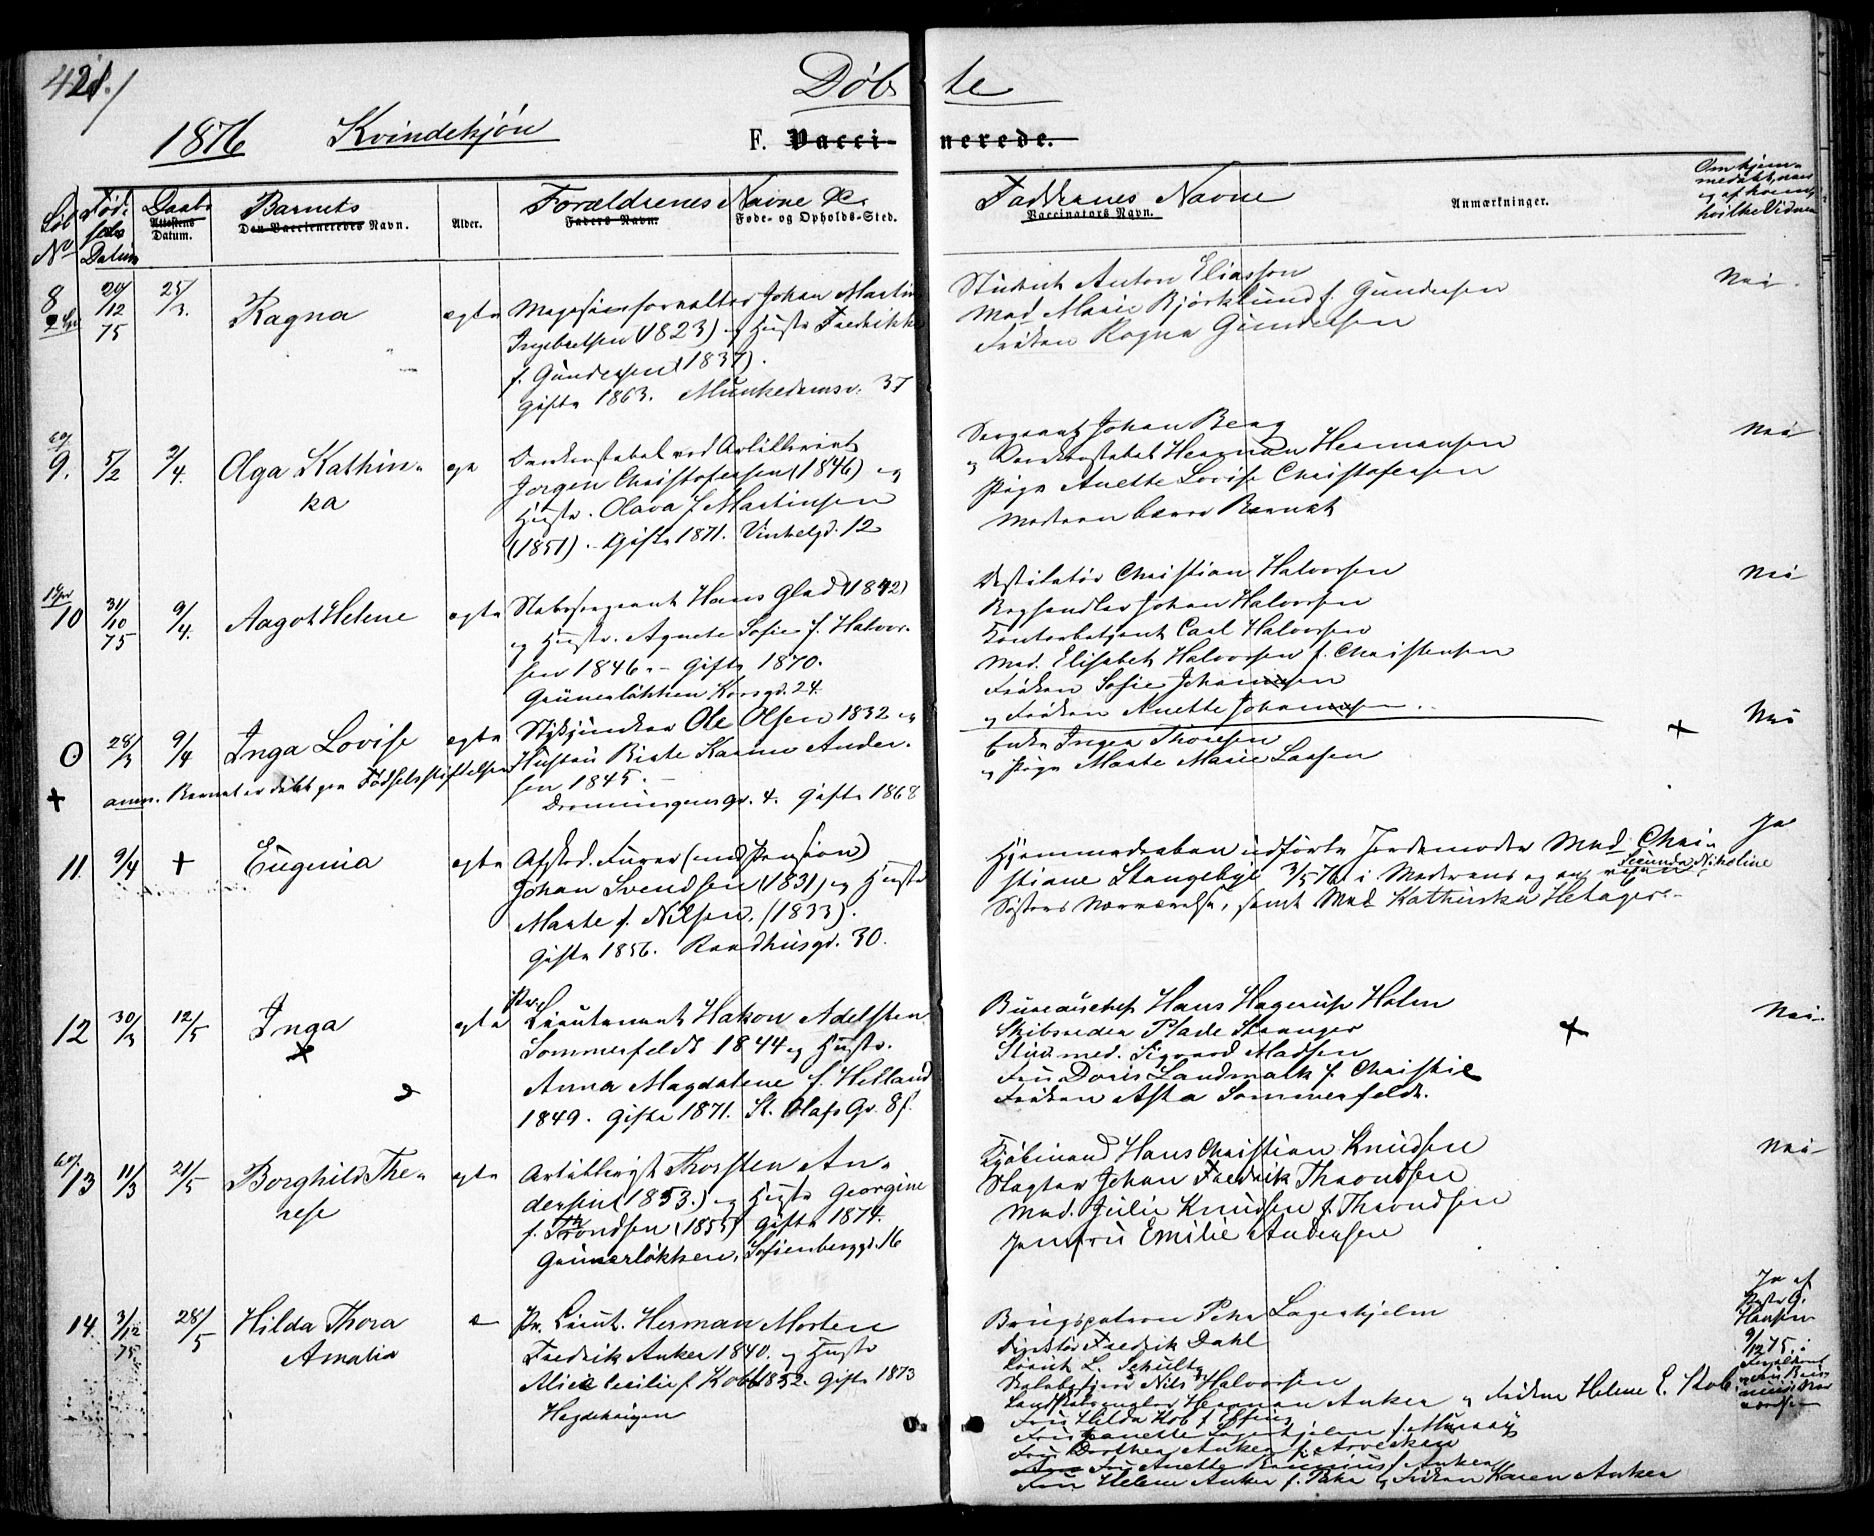 421.
Døbte
1876 Kvindekjøn
F. Vaccinerede.
Løb No
Fødsels Datum
Daabs
Attestens Datum.
Barnets
Den Vaccineredes Navn.
Alder.
Forældrenes Navne &c.
Faders Navn.
Føde- og Opholds-Sted.
Faddernes Navne
Vaccinators Navn.
Anmærkninger.
Om hjemmedøbt, naar og af hvem, hvilke Vidner
8 20/12 75 25/3. Ragna ægte
Magasinforvalter Johan Martin
Ingebretsen (1823) og Hustr Fredrikke
f. Gundersen (1837).
Gifte 1863. Munkedamsv. 37
Anton Eliasson
Mad Marie Bjørklund f. Gundersen
Frøken Ragna Gundersen
Nei.
9. 5/2 2/4. Olga Kathinka
Vardkonstabel ved Artilleriet
Jørgen Christofersen (1846) og
Hustr. Olava f Martinsen
(1851). Gifte 1871. Vinkelgd. 12
Sergeant Johan Berg
og Vardkonstabel Herman Hermansen
Pige Anette Lovise Christofersen
Moderen bærer Barnet
Nei
10 31/10 75 9/4. Aagot Helene ægte
Stabssergeant Hans Glad (1842)
og Hustr. Agnete Sofie f. Halvorsen
1846. – Gifte 1870.
Grünerløkken Korsgd. 24.
Destilatør Christian Halvorsen
Boghandler Johan Halvorsen
Kontorbetjent Carl Halvorsen
Mad. Elisabet Halvorsen f. Christensen
Frøken Sofie Johannesen
og Frøken Anette Johannesen.
Nei
0 28/3 9/4 Inga Lovise ægte
Stykjunker Ole Olsen 1832 og
Hustru Birte Karine Andersen
1845. –
Dronningensgd. 4. Gifte 1868
Enke Inger Thoresen
og Pige Marte Marie Larsen
+ Nei
+ anm. Barnet er døbt paa Fødselsstiftelsen
11 9/4 + Eugenia ægte
Afsked. Furer (med Pension)
Johan Svendsen (1831) og Hustr
Marte f. Nilsen. (1833).
Gifte 1856. Raadhusgd. 30.
Hjemmedaaben udførte Jordemoder Mad. Christiane
Stangebye 3/5 76 i Moderens og Secunda Nikoline
Søsters Nærværelse, samt Mad Kathinka Hetager
Ja
12 30/3 12/5 Inga ægte
+
Pr. Lieutenant Hakon Adelsten
Sommerfeldt 1844 og Hustr.
Anna Magdalene f. Helland
1849. Gifte 1871. St. Olafs Gd. 8f.
Bureauchef Hans Hagerup Holm
Skibsreder Plade Stranger
Stud med. Sigvard Madsen
Fru Doris Landmark f. Christie
Frøken Asta Sommerfeldt.
+ Nei.
13 11/3 21/5 Borghild Therese ægte
Artillerist Thorsten Andersen
(1853.) og Hustr Georgine
f. Trondsen (1855) Gifte 1874.
Grünerløkken, Sofienberggd. 16
Kjøbmand Hans Christian Knudsen
Slagter Johan Fredrik Throndsen
Mad. Julie Knudsen f. Throndsen
Jomfru Emilie Andersen
Nei
14 3/12 75 28/5 Hilda Thora Amalia
Pr. Lieut. Herman Morten
Fredrik Anker 1840. og Hustr
Alice Cecilie f. Kobb 1852. Gifte 1873
Hegdehaugen
Brugspatron Peter Lagerhjelm
Direktør Fredrik Dahl
L. Schultz
Skolebestyrer Nils Halvorsen
Herman Anker og Frøken Helene C. Kob
Fru Hilda Kob f
Fru Janette Lagerhjelm f. Murray
Fru Dorthea Anker f.
Fru Anette f Anker
Fru Helene Anker f. og Frøken Karen Anker
Ja af
G.
Hansen
9/12 75